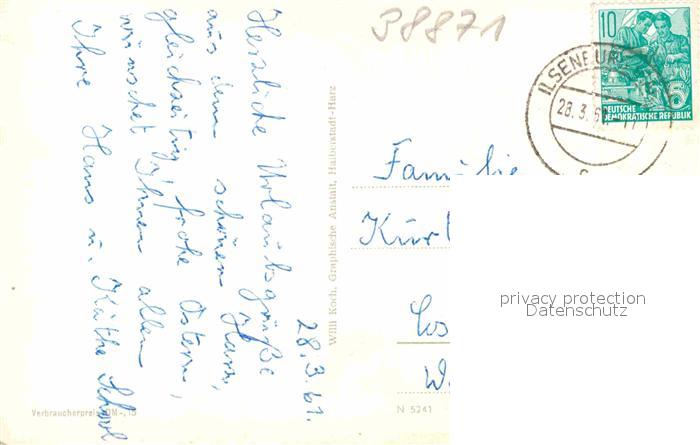 38871
28.3.61.
Herzliche Urlaubsgrüße
aus dem schönen Harz,
gleichzeitig frohe Ostern,
wünschet Ihnen allen
Ihre Hans u. Käthe
Verbraucherpreis DM -,15
Willi Koch, Graphische Anstalt, Halberstadt-Harz
N 5241
10
DEUTSCHE
DEMOKRATISCHE REPUBLIK
ILSENBURG
28.3.61
Familie
Kurt
privacy protection
Datenschutz